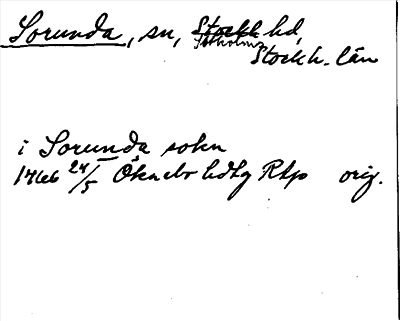 Sorunda, sn, Stockh hd,
Sotholms
Stockh. län
i Sorunda sokn
1466 24/5 Öknebo hdtg Rtp orig.